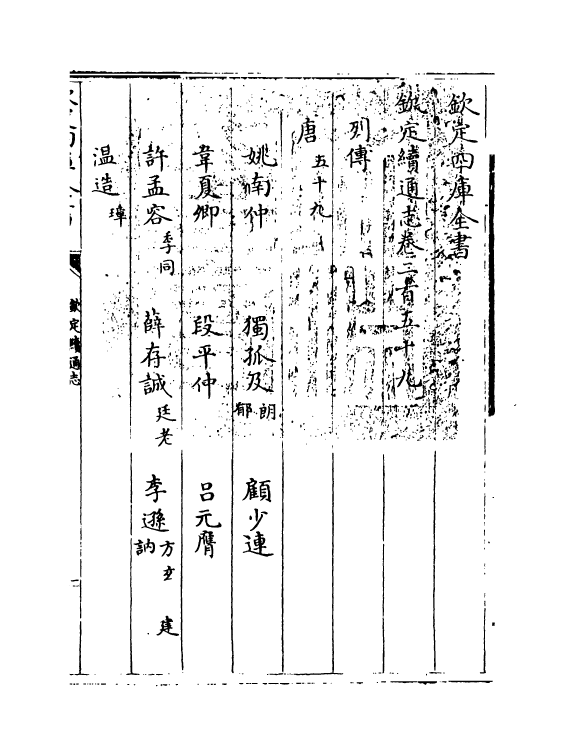 欽定四庫全書
欽定續通志卷二百五十九
列傳
唐五十九
姚南仲 獨孤及朗郁 顧少連
韋夏卿 段平仲 呂元膺
許孟容季同 薛存誠廷老 李遜方玄建訥
温造璋
欽定續通志